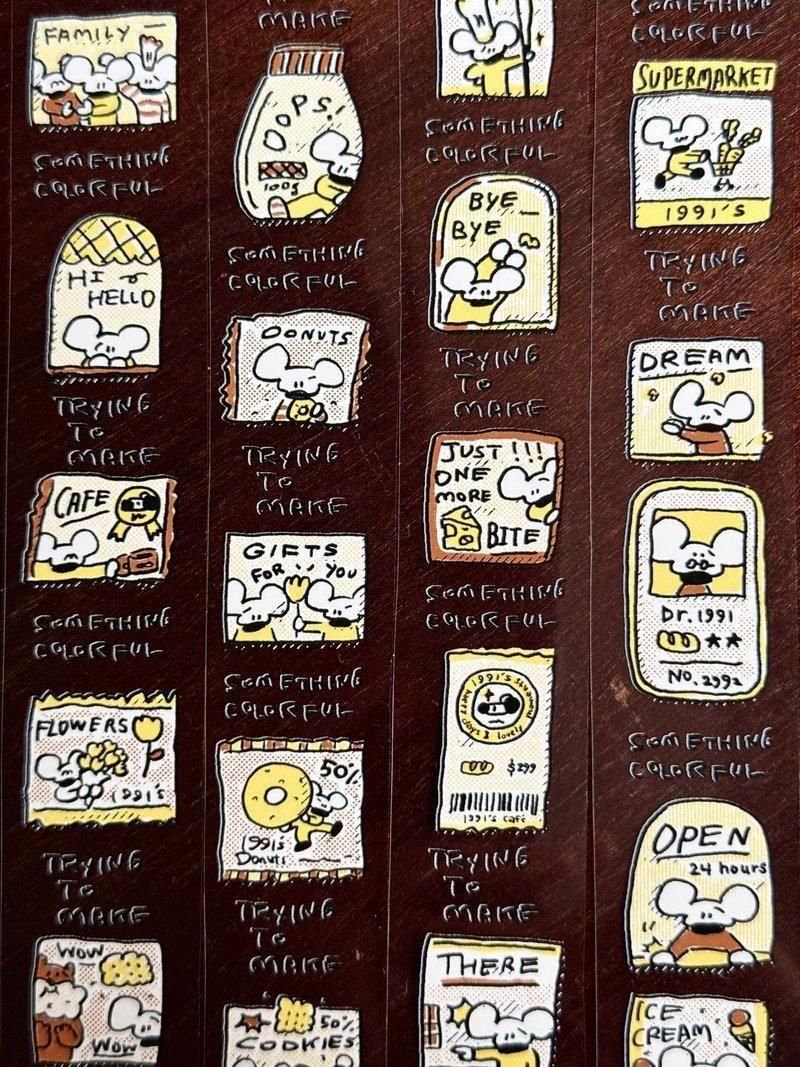 FAMILY
SOMETHING
COLORFUL
HI
HELLO
TRYING
TO
MAKE
CAFE
SOMETHING
COLORFUL
FLOWERS
1991's
TRYING
TO
MAKE
WOW
WOW
MAKE
OOPS!
100g
SOMETHING
COLORFUL
DONUTS
TRYING
TO
MAKE
GIFTS
FOR YOU
SOMETHING
COLORFUL
50%
1991's
Donuts
TRYING
TO
MAKE
50%
COOKIES
SOMETHING
COLORFUL
BYE
BYE
TRYING
TO
MAKE
JUST!!!
ONE
MORE
BITE
SOMETHING
COLORFUL
1991's
happy days & lovely moments
$299
1991's café
TRYING
TO
MAKE
THERE
SOMETHING
COLORFUL
SUPERMARKET
1991's
TRYING
TO
MAKE
DREAM
Dr.1991
No.2992
SOMETHING
COLORFUL
OPEN
24 hours
ICE
CREAM